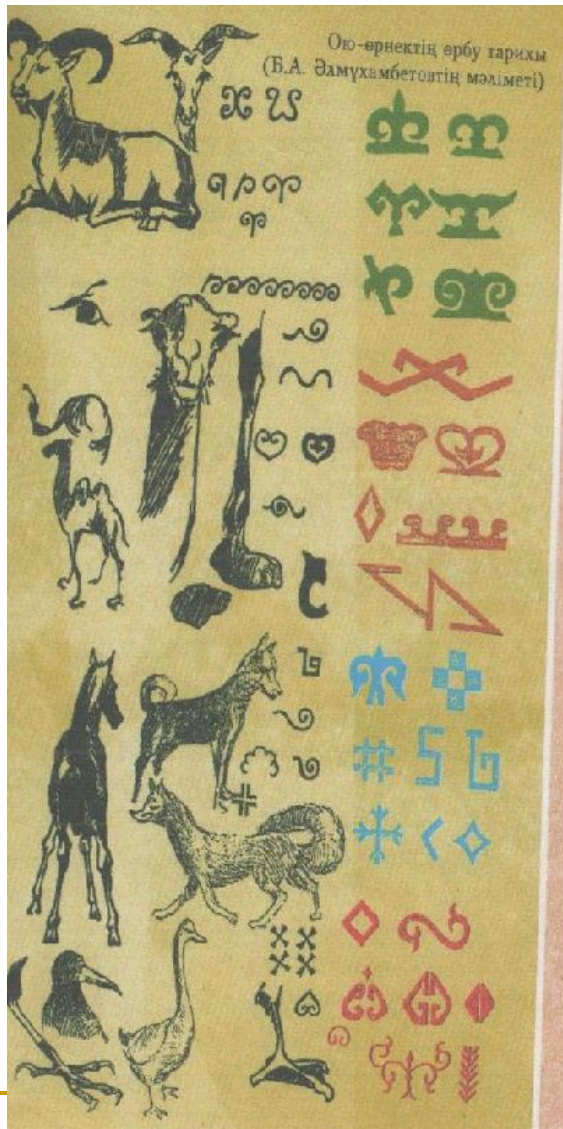 Ою-өрнектің өрбу тарихы
(Б.А. Әлмұхамбетовтің мәліметі)